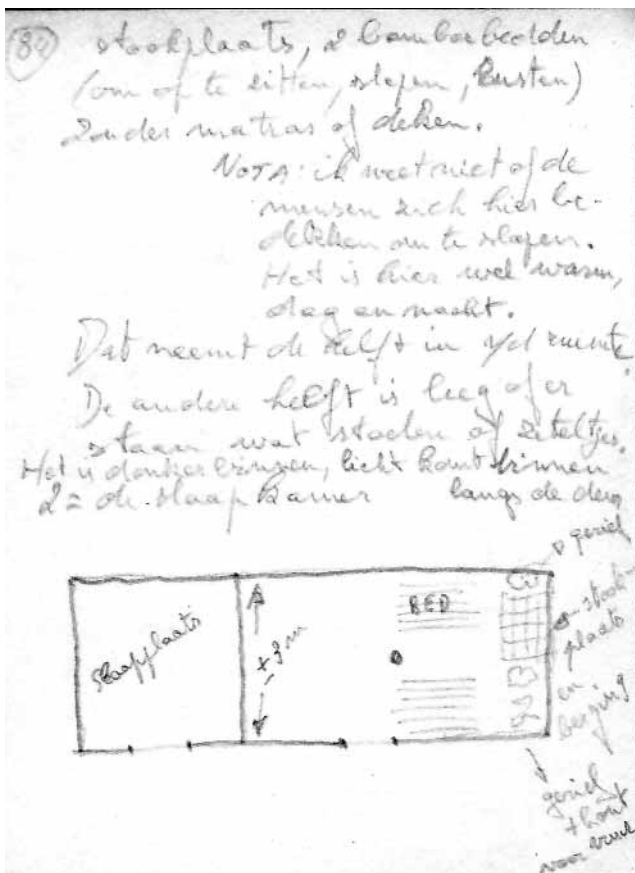 84
stookplaats, 2 bamboebedden
(om op te zitten, slapen, rusten)
zonder matras of deken.
NOTA: ik weet niet of de
mensen zich hier be-
dekken om te slapen.
Het is hier wel warm,
dag en nacht.
Dat neemt de helft in v/d ruimte.
De andere helft is leeg of er
staan wat stoelen of zeteltjes.
Het is donker binnen, licht komt binnen
langs de deur
2 = de slaapkamer
slaapplaats
± 3 m
BED
gerief
stook-
plaats
en
berging
gerief
+ hout
voor vuur